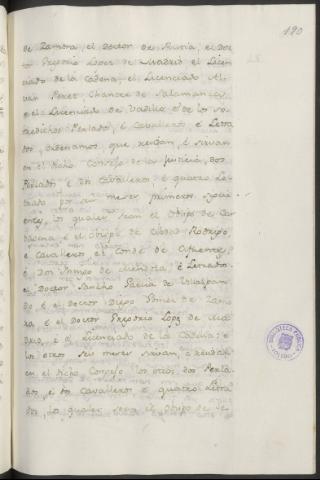 190
de Zamora, el Doctor de Murcia, el Doc
tor Gregorio Lopez de Madrid el Licen
ciado de la Cadena, el Licenciado Al
var Perez, Chantre de Salamanca,
e el Licenciado de Vadillo é de los so
bredichos Perlados, é Cavalleros é Letra
dos, ordenamos que rendan, é sirvan
en el dicho Consejo de la Justicia, dos
Perlados é dos cavalleros, é quatro Le
trados por seis meses primeros
los quales sean el Obispo de Car
é el Obispo de Cibdad-Rodrigo
e Cavalleros el Conde de Cifuentes,
é Dos de Mendoza, é Letrados
el Doctor Sancho Garcia de Villalpan
do é el Doctor Diego Gomez de Zamo
ra é el Doctor Gregorio Lopez de Ma
drid, é el Licenciado de la Cadena: é
los otros seis meses sirvan, é rendan
en el dicho Consejo los otros dos Perla
dos, é dos Cavalleros é quatro Letra
dos, los quales sean el Obispo de
BIBLIOTECA PUBLICA
TOLEDO